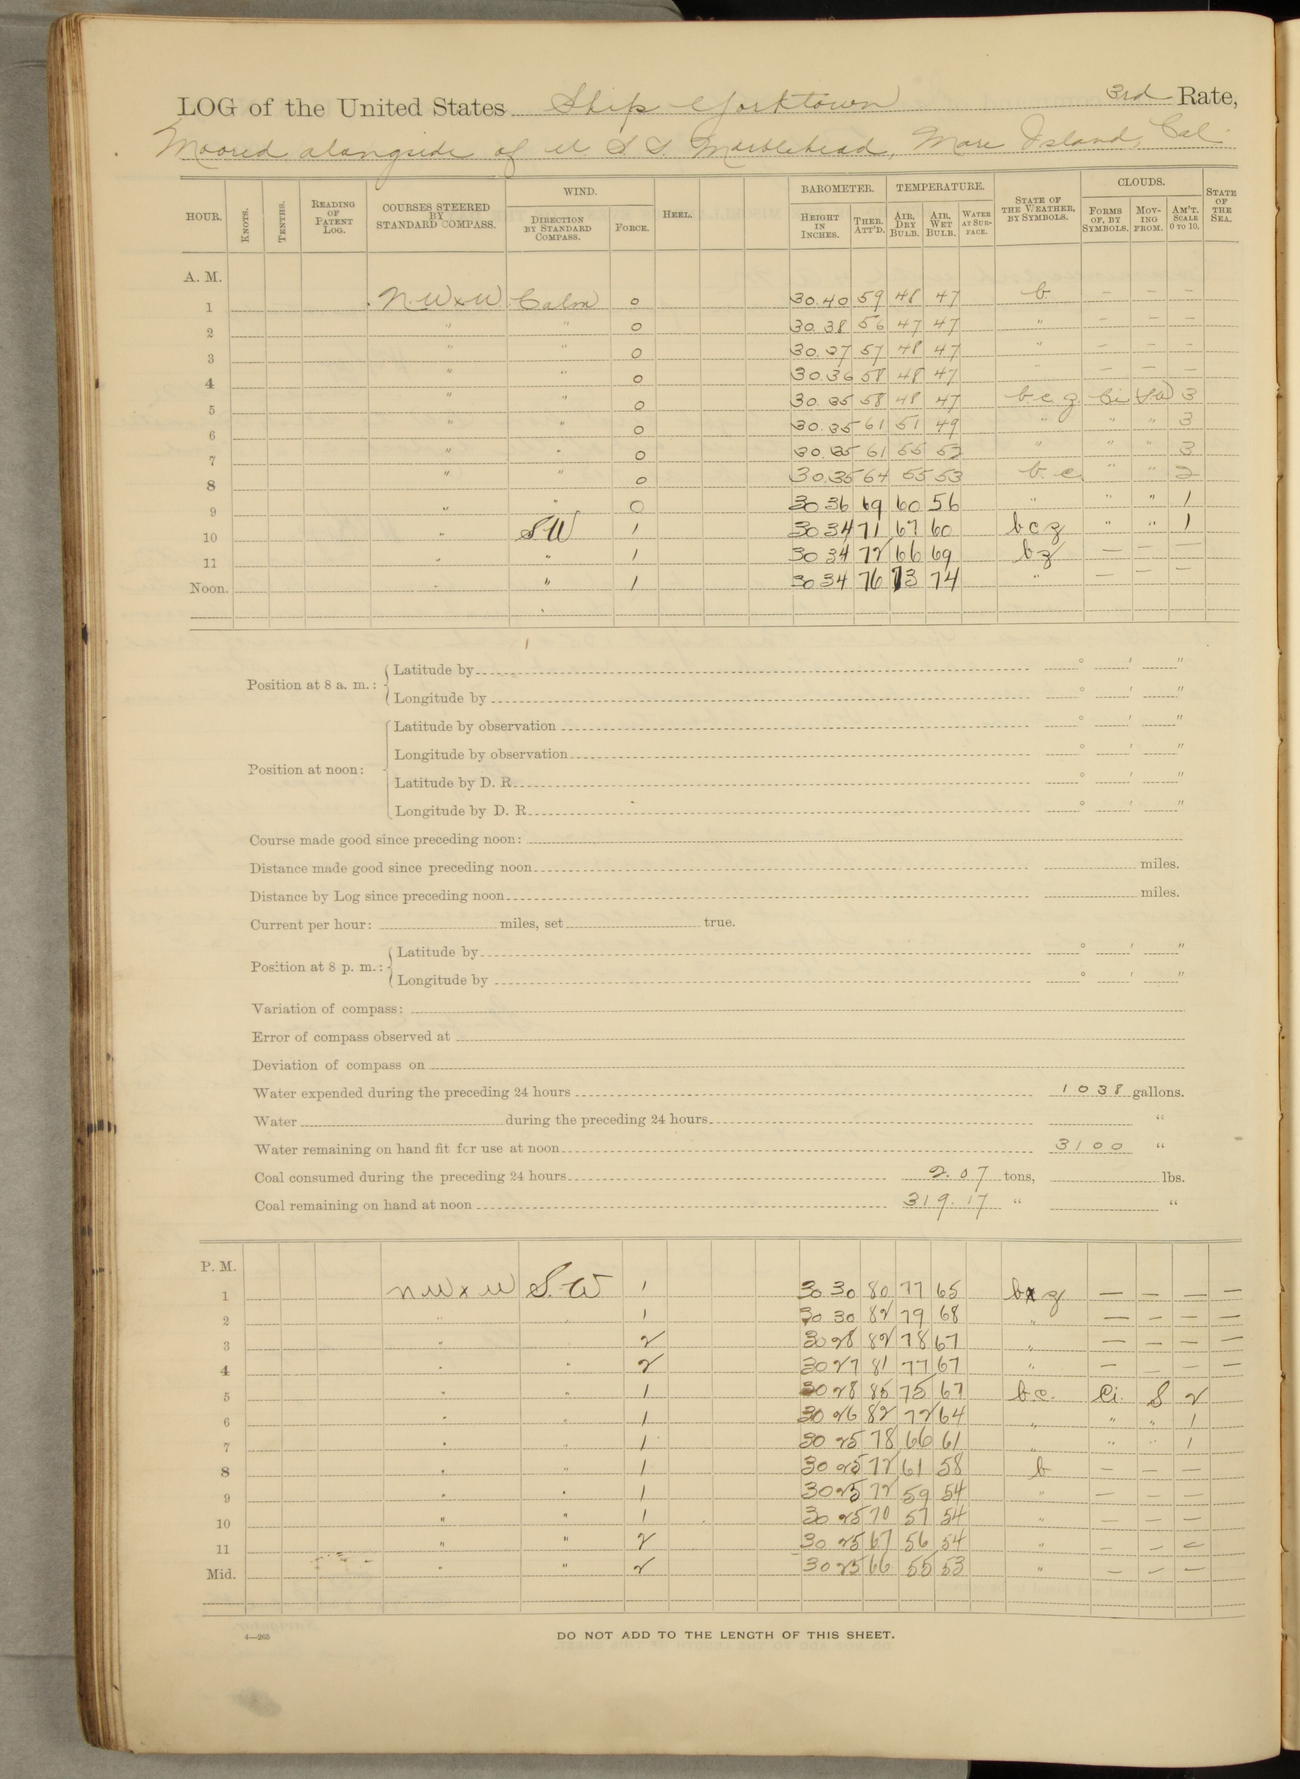 LOG of the United States Ship Yorktown 3rd Rate,
Moored alongside of U S S. Marblehead, Mare Island, Cal.
HOUR. KNOTS. TENTHS. READING OF PATENT LOG. COURSES STEERED BY STANDARD COMPASS. WIND. DIRECTION BY STANDARD COMPASS. FORCE. HEEL. BAROMETER. HEIGHT IN INCHES. THER. ATT'D. TEMPERATURE. AIR, DRY BULB. AIR, WET BULB. WATER AT SURFACE. STATE OF THE WEATHER, BY SYMBOLS. CLOUDS. FORMS OF, BY SYMBOLS. MOVING FROM. AM'T. SCALE 0 TO 10. STATE OF THE SEA.
A. M.
1 N.W x W Calm 0 30.40 59 48 47 b — — —
2 " " 0 30.38 56 47 47 " — — —
3 " " 0 30.37 57 48 47 " — — —
4 " " 0 30.36 58 48 47 " — — —
5 " " 0 30.35 58 48 47 b.c.z. Ci SW 3
6 " " 0 30.35 61 51 49 " " " 3
7 " " 0 30.35 61 55 52 " " " 3
8 " " 0 30.35 64 55 53 b.c. " " 2
9 " " 0 30 36 69 60 56 " " " 1
10 " S.W 1 30 34 71 67 60 b c z " " 1
11 " " 1 30 34 72 66 69 b z — — —
Noon. " " 1 30 34 76 73 74 " — — —
Position at 8 a. m.: Latitude by ° ' "
Longitude by ° ' "
Position at noon: Latitude by observation ° ' "
Longitude by observation ° ' "
Latitude by D. R. ° ' "
Longitude by D. R. ° ' "
Course made good since preceding noon:
Distance made good since preceding noon miles.
Distance by Log since preceding noon miles.
Current per hour: miles, set true.
Position at 8 p. m.: Latitude by ° ' "
Longitude by ° ' "
Variation of compass:
Error of compass observed at
Deviation of compass on
Water expended during the preceding 24 hours 1038 gallons.
Water during the preceding 24 hours "
Water remaining on hand fit for use at noon 3100 "
Coal consumed during the preceding 24 hours 2.07 tons, lbs.
Coal remaining on hand at noon 319.17 " "
P. M.
1 N W x W S.W 1 30 30 80 77 65 b z — — — —
2 " " 1 30 30 82 79 68 " — — — —
3 " " 2 30 28 82 78 67 " — — — —
4 " " 2 30 27 81 77 67 " — — — —
5 " " 1 30 28 85 75 67 b.c. Ci. S 2
6 " " 1 30 26 82 72 64 " " " 1
7 " " 1 30 25 78 66 61 " " " 1
8 " " 1 30 25 72 61 58 b — — —
9 " " 1 30 25 72 59 54 " — — —
10 " " 1 30 25 70 57 54 " — — —
11 " " 2 30 25 67 56 54 " — — —
Mid. " " 2 30 25 66 55 53 " — — —
4—265 DO NOT ADD TO THE LENGTH OF THIS SHEET.